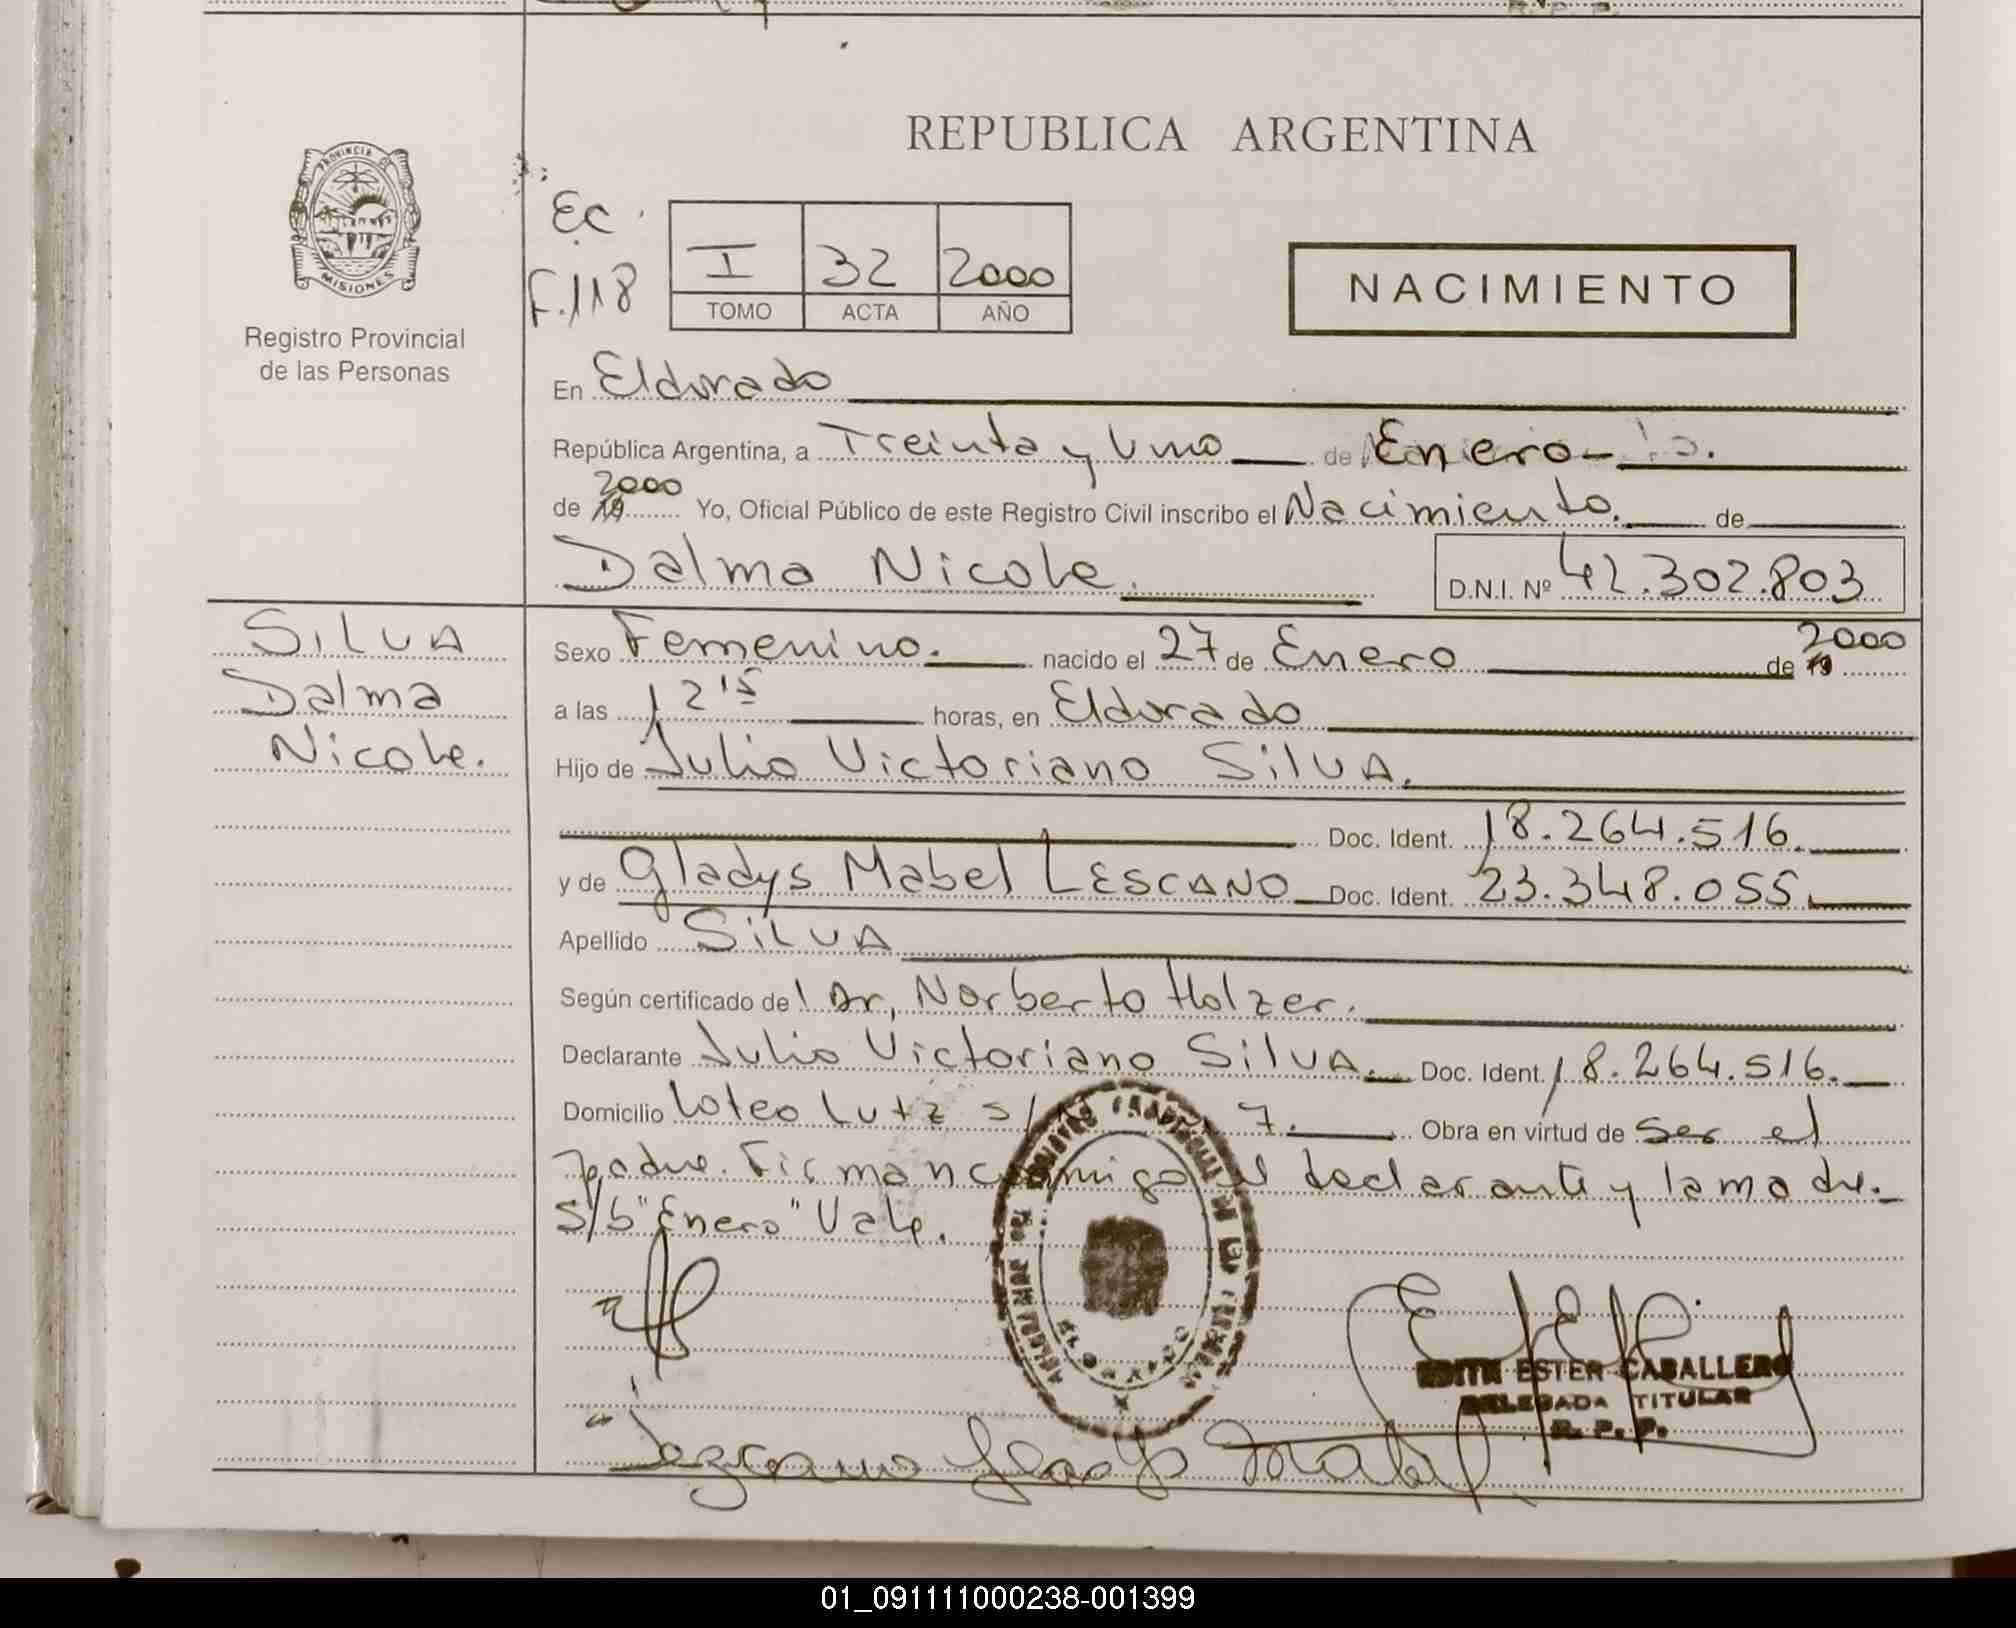 REPUBLICA ARGENTINA
PROVINCIA DE
MISIONES
Registro Provincial
de las Personas
Ec.
F.118
I 32 2000
TOMO ACTA AÑO
NACIMIENTO
En Eldorado
República Argentina, a Treinta y Uno de Enero
2000
de 19 Yo, Oficial Público de este Registro Civil inscribo el Nacimiento. de
Dalma Nicole. D.N.I. Nº 42.302.803
SILVA
Dalma
Nicole.
2000
Sexo Femenino. nacido el 27 de Enero de 19
a las 12 15 horas, en Eldorado
Hijo de Julio Victoriano SilVA.
Doc. Ident. 18.264.516.
y de Gladys Mabel LESCANO Doc. Ident. 23.348.055.
Apellido SILVA
Según certificado de Dr. Norberto Holzer.
Declarante Julio Victoriano SilVA. Doc. Ident. 18.264.516.
Domicilio Loteo Lutz 7. Obra en virtud de Ser el
padre. Firman conmigo el declarante y la madre.
S/b "Enero" Vale.
EDITH ESTER CABALLERO
DELEGADA TITULAR
R. P. P.
Mabel
01_091111000238-001399